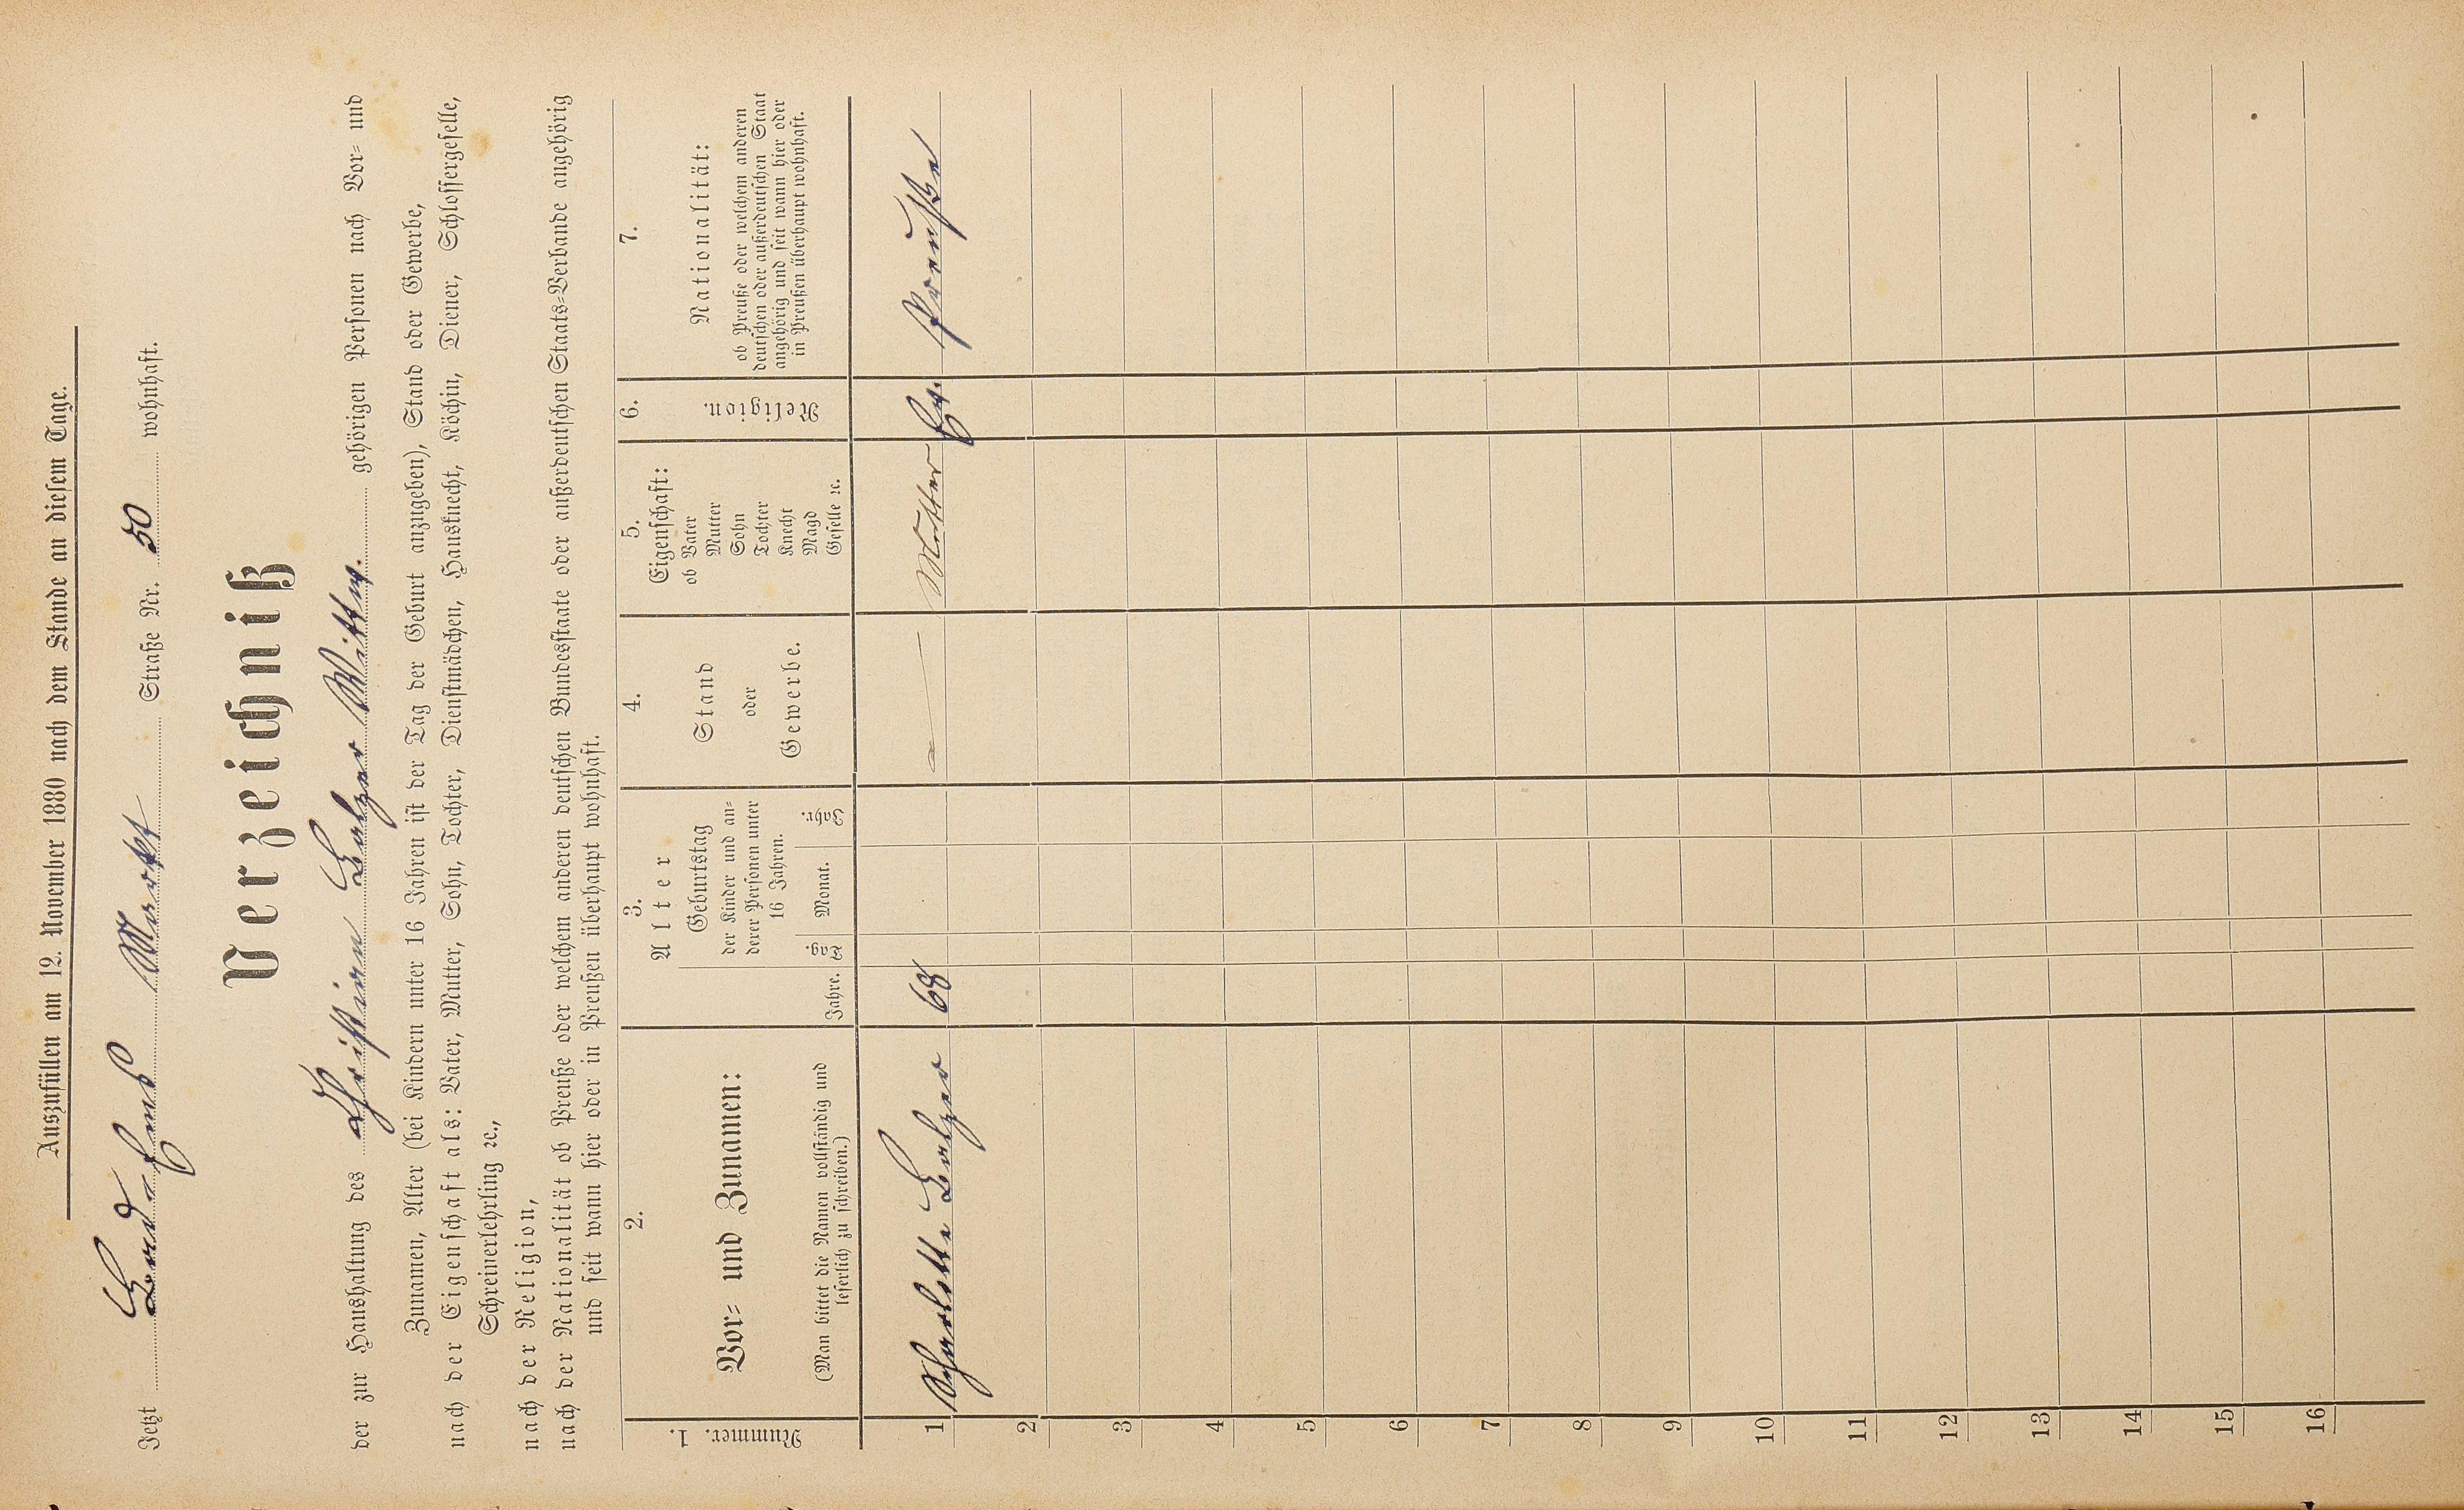 Auszufüllen am 12. November 1880 nach dem Stande an diesem Tage.
Jetzt Bad Ems Markt Straße Nr. 50 wohnhaft.
Verzeichniß
der zur Haushaltung des Christian Balzer Wittw. gehörigen Personen nach Vor= und
Zunamen, Alter (bei Kindern unter 16 Jahren ist der Tag der Geburt anzugeben), Stand oder Gewerbe,
nach der Eigenschaft als: Vater, Mutter, Sohn, Tochter, Dienstmädchen, Hausknecht, Köchin, Diener, Schlossergeselle,
Schreinerlehrling ꝛc.,
nach der Religion,
nach der Nationalität ob Preuße oder welchem anderen deutschen Bundesstaate oder außerdeutschen Staats=Verbande angehörig
und seit wann hier oder in Preußen überhaupt wohnhaft.
Nummer. 1.
2.
Vor= und Zunamen:
(Man bittet die Namen vollständig und
leserlich zu schreiben.)
3.
Alter
Jahre.
Geburtstag
der Kinder und an=
derer Personen unter
16 Jahren.
Tag
Monat.
Jahr.
4.
Stand
oder
Gewerbe.
5.
Eigenschaft:
ob Vater
Mutter
Sohn
Tochter
Knecht
Magd
Geselle ꝛc.
6.
Religion.
7.
Nationalität:
ob Preuße oder welchem anderen
deutschen oder außerdeutschen Staat
angehörig und seit wann hier oder
in Preußen überhaupt wohnhaft.
1 Scharlotte Balzer 68 — Mutter Ev. Preuße
2
3
4
5
6
7
8
9
10
11
12
13
14
15
16